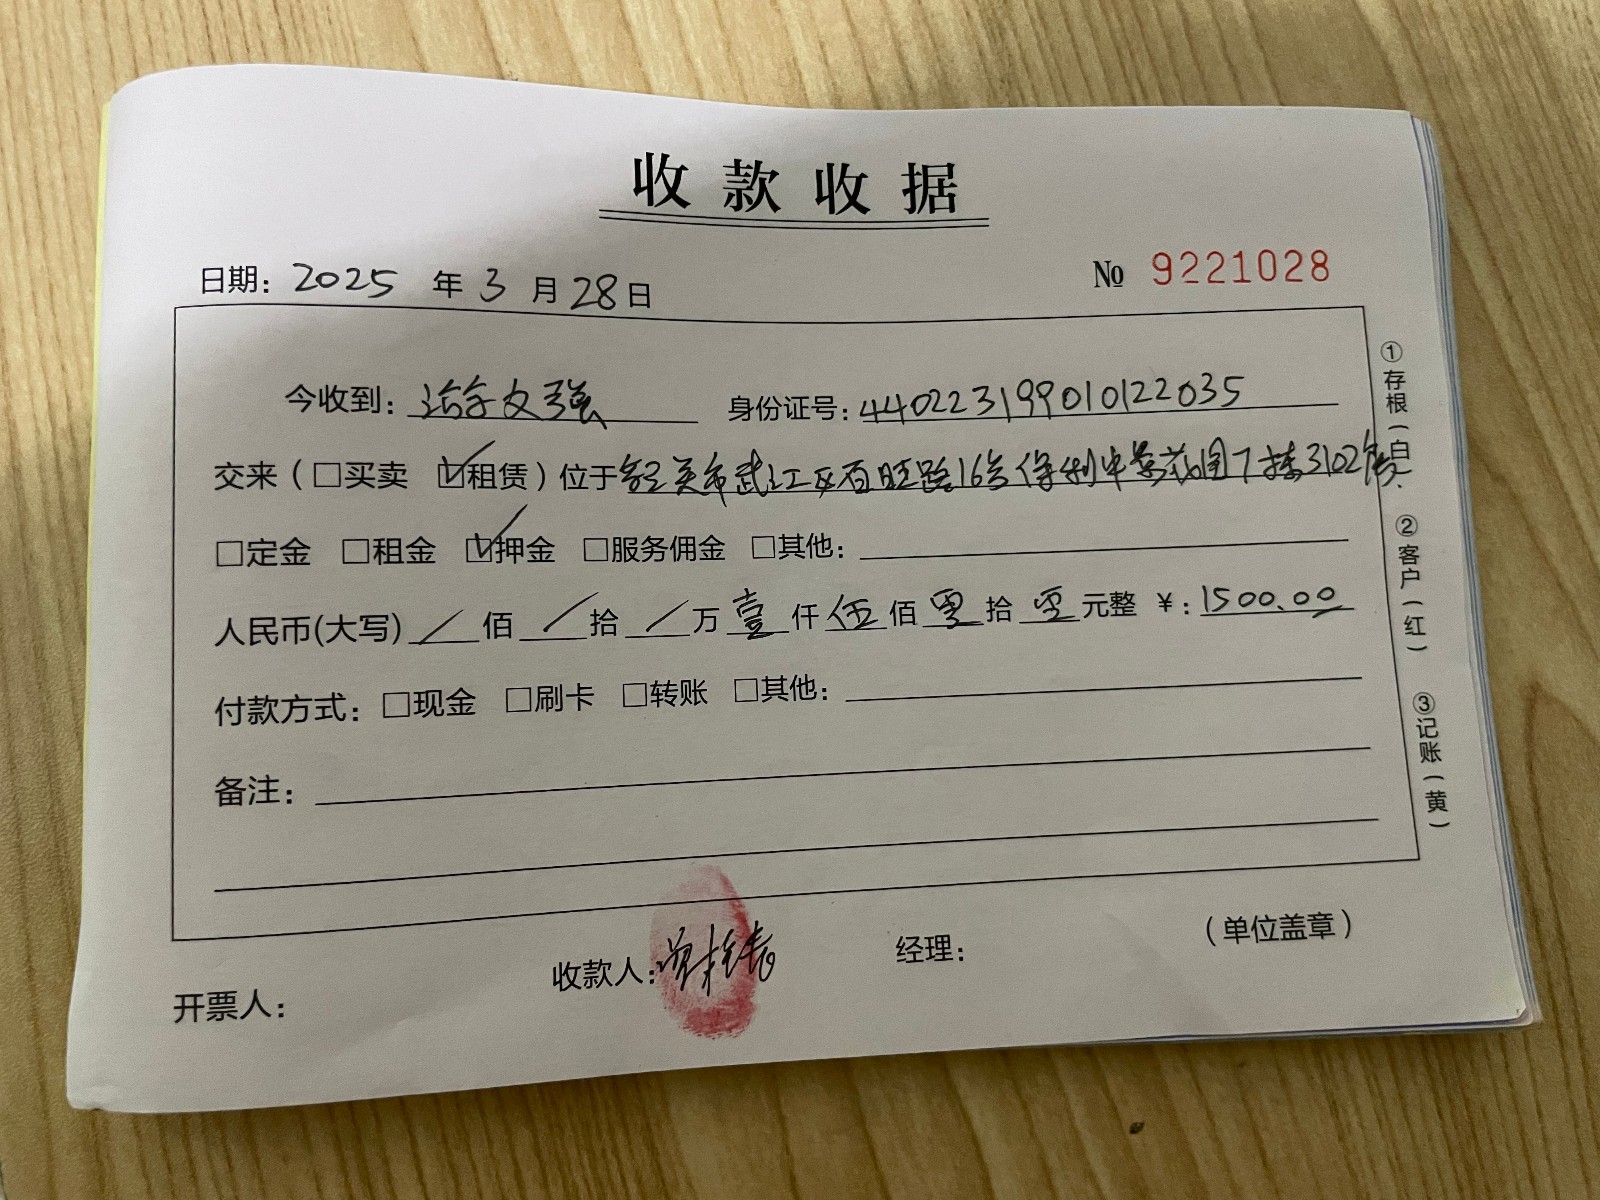 收款收据
日期：2025 年 3 月 28 日 № 9221028
今收到：文强 身份证号：440223199010122035
交来（□买卖 ☑租赁）位于韶关市武江区百旺路16号保利中景花园7栋3102房.
□定金 □租金 ☑押金 □服务佣金 □其他：
人民币(大写) / 佰 / 拾 / 万 壹 仟 伍 佰 零 拾 零 元整 ¥：1500.00
付款方式：□现金 □刷卡 □转账 □其他：
备注：
开票人： 收款人： 经理： （单位盖章）
①存根（白） ②客户（红） ③记账（黄）